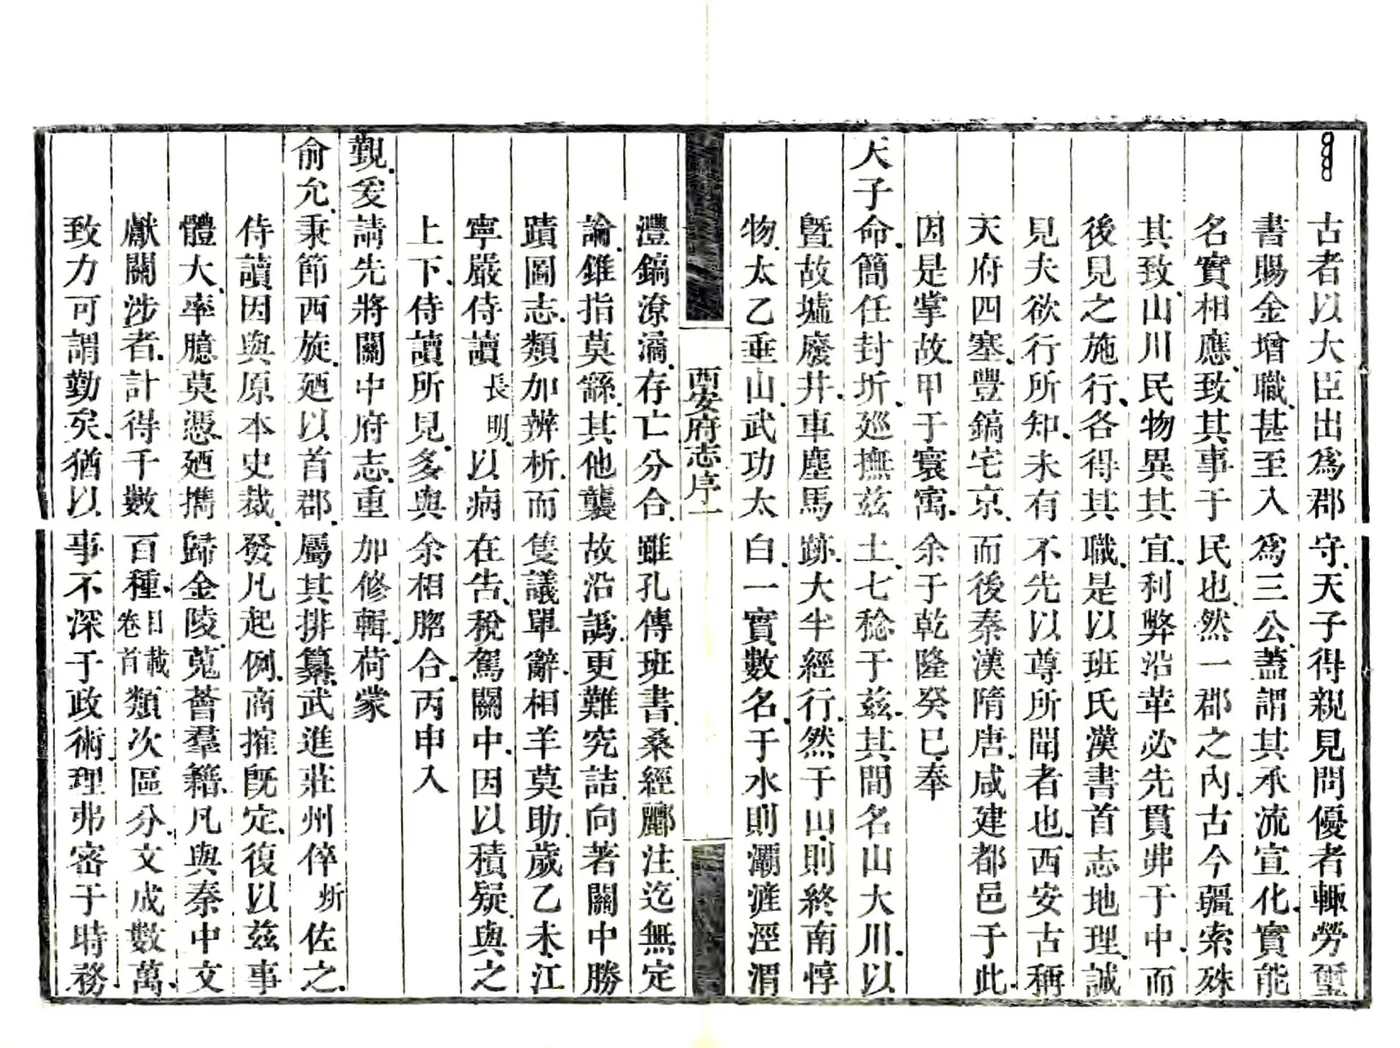 古者以大臣出爲郡守天子得親見問優者輒勞璽
書賜金增職甚至入爲三公蓋謂其承流宣化實能
名實相應致其事于民也然一郡之內古今疆索殊
其致山川民物異其宜利弊沿革必先貫弗于中而
後見之施行各得其職是以班氏漢書首志地理誠
見夫欲行所知未有不先以尊所聞者也西安古稱
天府四塞豐鎬宅京而後秦漢隋唐咸建都邑于此
因是掌故甲于寰寓余于乾隆癸巳奉
天子命簡任封圻廵撫茲土七稔于茲其間名山大川以
曁故墟廢井車塵馬跡大半經行然于山則終南惇
物太乙垂山武功太白一實數名于水則灞滻涇渭
西安府志序一
灃鎬潦潏存亡分合雖孔傳班書桑經酈注迄無定
論錐指莫繇其他襲故沿譌更難究詰向著關中勝
蹟圖志類加辨析而隻議單辭相羊莫助歲乙未江
寧嚴侍讀長明以病在告稅駕關中因以積疑與之
上下侍讀所見多與余相脗合丙申入
覲爰請先將關中府志重加修輯荷蒙
俞允秉節西旋廼以首郡屬其排纂武進莊州倅炘佐之
侍讀因與原本史裁發凡起例商搉旣定復以茲事
體大率臆莫憑廼攜歸金陵蒐薈羣籍凡與秦中文
獻關涉者計得千數百種目載卷首類次區分文成數萬
致力可謂勤矣猶以事不深于政術理弗密于時務